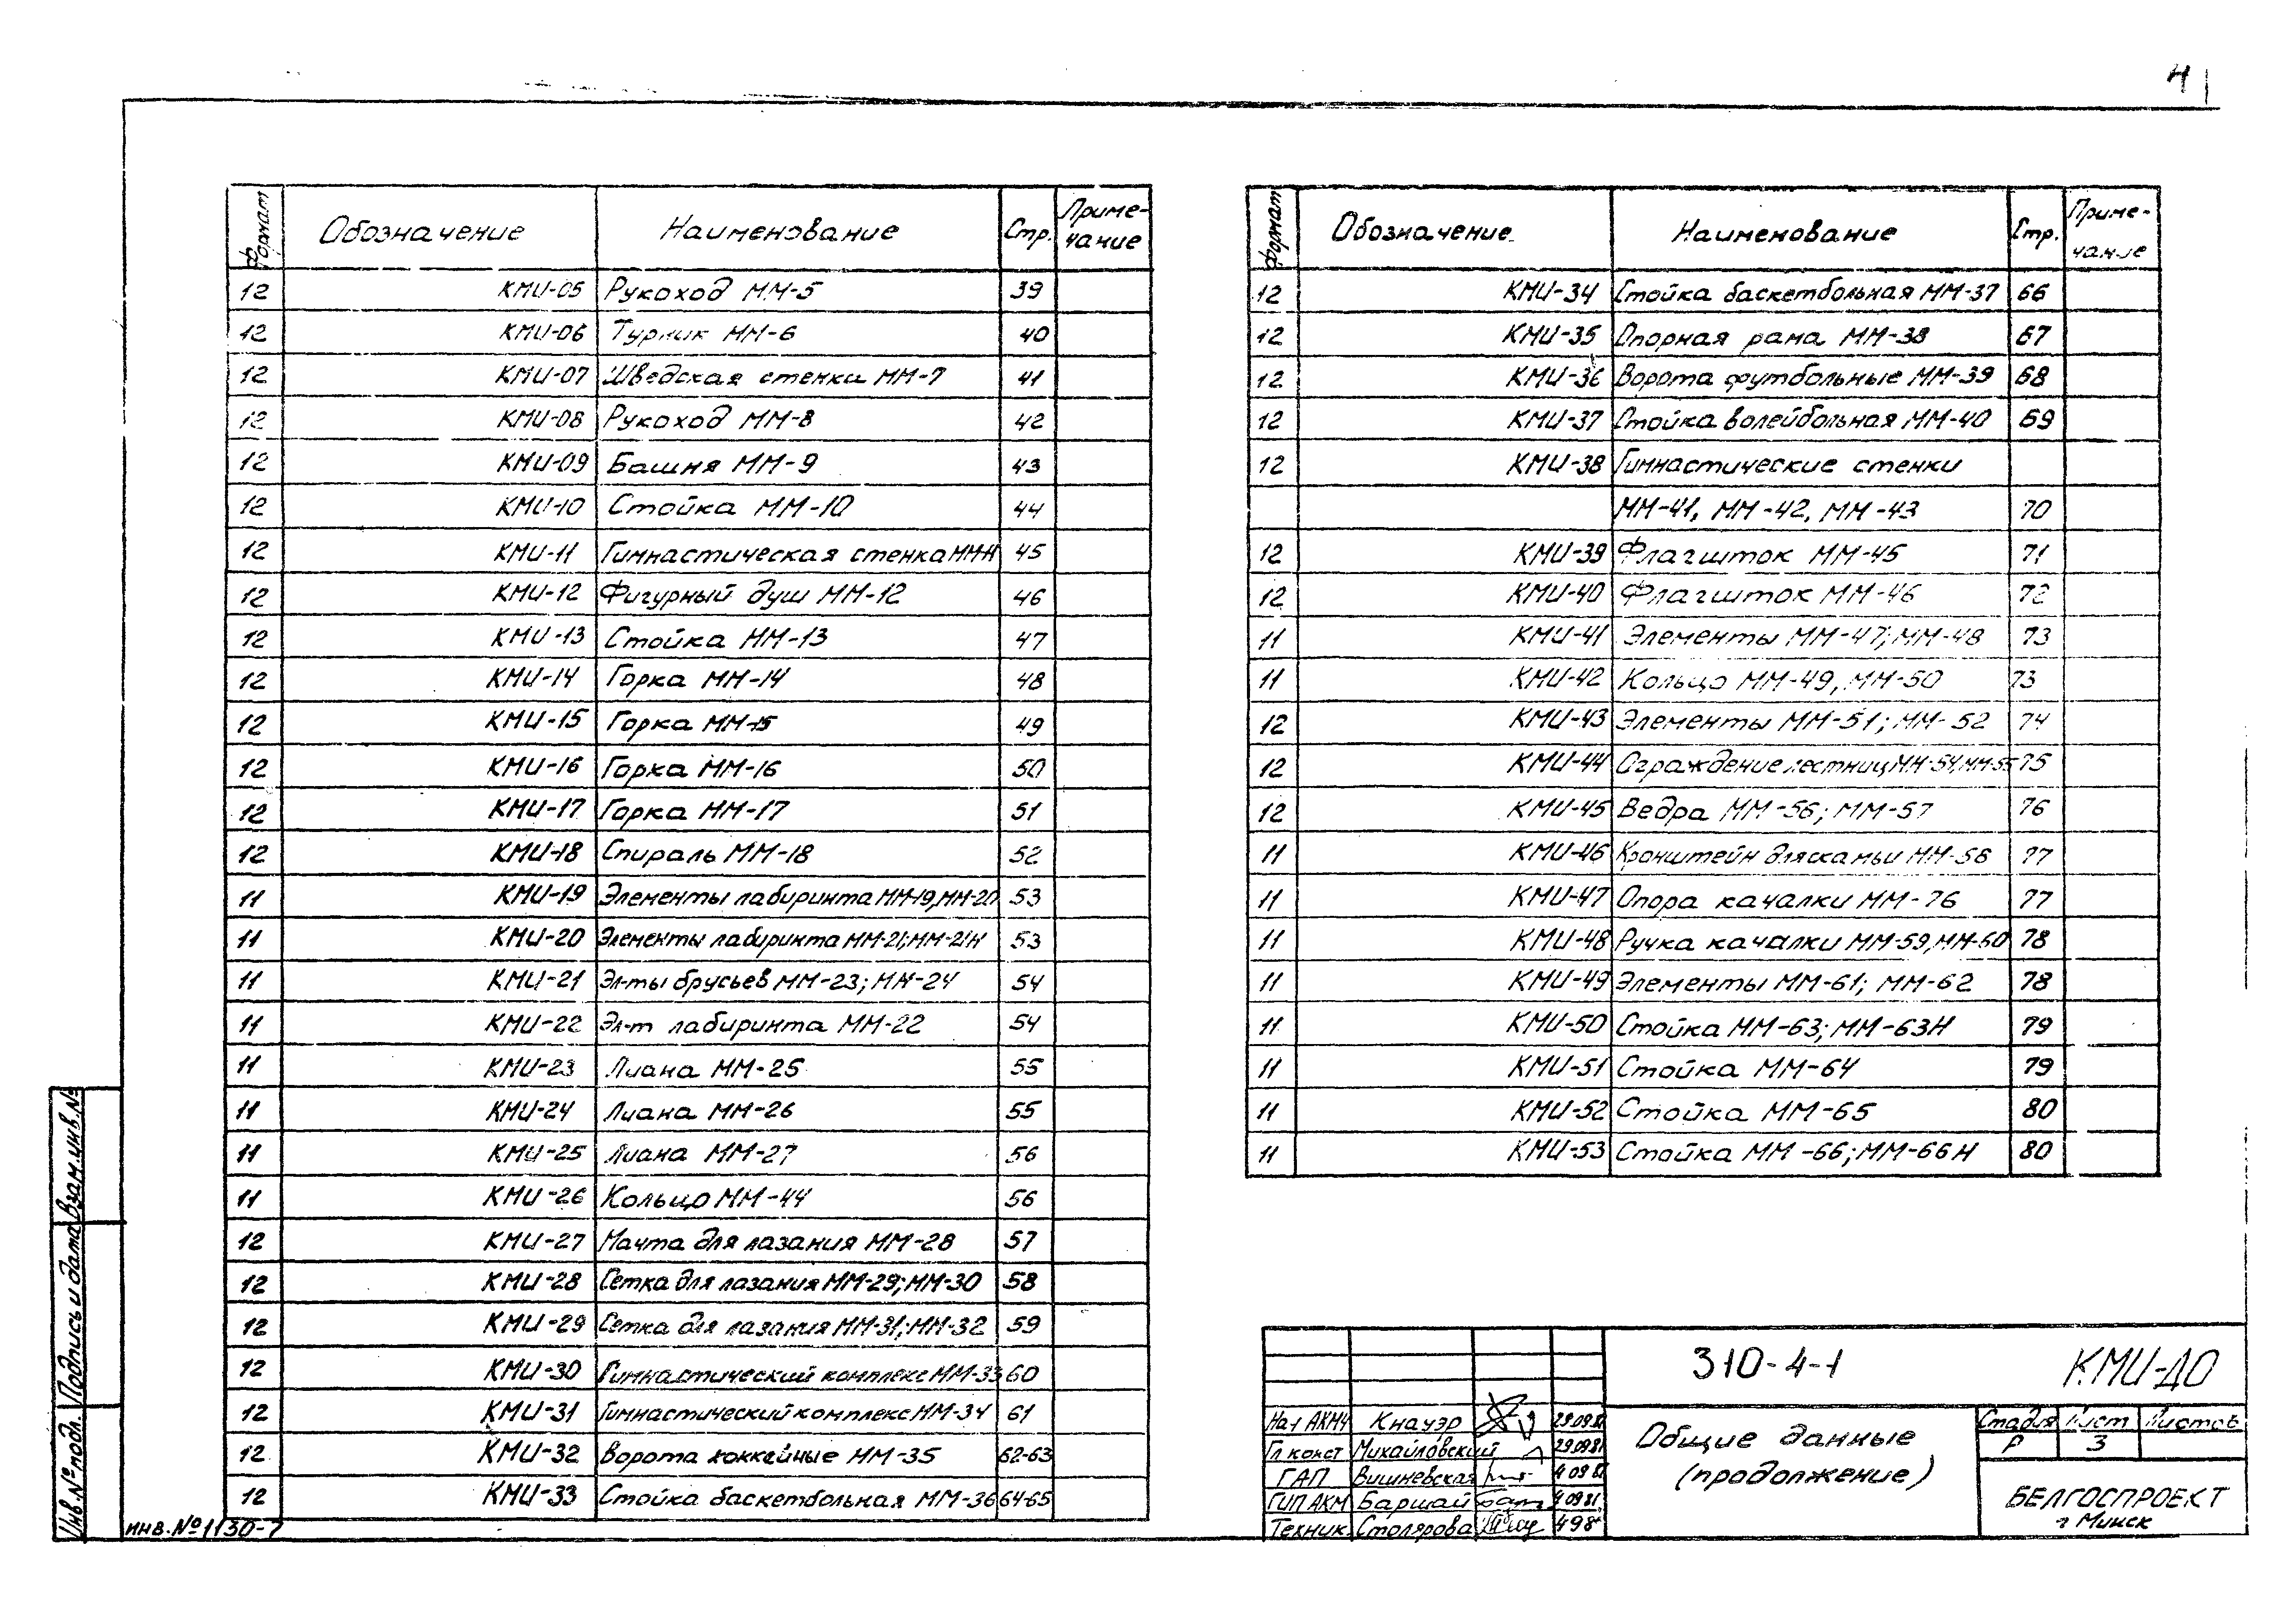 4
Формат Обозначение Наименование Стр. Примечание
12 КМИ-05 Рукоход ММ-5 39
12 КМИ-06 Турник ММ-6 40
12 КМИ-07 Шведская стенка ММ-7 41
12 КМИ-08 Рукоход ММ-8 42
12 КМИ-09 Башня ММ-9 43
12 КМИ-10 Стойка ММ-10 44
12 КМИ-11 Гимнастическая стенка ММ-11 45
12 КМИ-12 Фигурный душ ММ-12 46
12 КМИ-13 Стойка ММ-13 47
12 КМИ-14 Горка ММ-14 48
12 КМИ-15 Горка ММ-15 49
12 КМИ-16 Горка ММ-16 50
12 КМИ-17 Горка ММ-17 51
12 КМИ-18 Спираль ММ-18 52
11 КМИ-19 Элементы лабиринта ММ-19, ММ-20 53
11 КМИ-20 Элементы лабиринта ММ-21; ММ-21Н 53
11 КМИ-21 Эл-ты брусьев ММ-23; ММ-24 54
11 КМИ-22 Эл-т лабиринта ММ-22 54
11 КМИ-23 Лиана ММ-25 55
11 КМИ-24 Лиана ММ-26 55
11 КМИ-25 Лиана ММ-27 56
11 КМИ-26 Кольцо ММ-44 56
12 КМИ-27 Мачта для лазания ММ-28 57
12 КМИ-28 Сетка для лазания ММ-29; ММ-30 58
12 КМИ-29 Сетка для лазания ММ-31; ММ-32 59
12 КМИ-30 Гимнастический комплекс ММ-33 60
12 КМИ-31 Гимнастический комплекс ММ-34 61
12 КМИ-32 Ворота хоккейные ММ-35 62-63
12 КМИ-33 Стойка баскетбольная ММ-36 64-65
Формат Обозначение Наименование Стр. Примечание
12 КМИ-34 Стойка баскетбольная ММ-37 66
12 КМИ-35 Опорная рама ММ-38 67
12 КМИ-36 Ворота футбольные ММ-39 68
12 КМИ-37 Стойка волейбольная ММ-40 69
12 КМИ-38 Гимнастические стенки
ММ-41, ММ-42, ММ-43 70
12 КМИ-39 Флагшток ММ-45 71
12 КМИ-40 Флагшток ММ-46 72
11 КМИ-41 Элементы ММ-47; ММ-48 73
11 КМИ-42 Кольцо ММ-49, ММ-50 73
12 КМИ-43 Элементы ММ-51; ММ-52 74
12 КМИ-44 Ограждение лестниц ММ-54, ММ-55 75
12 КМИ-45 Ведра ММ-56; ММ-57 76
11 КМИ-46 Кронштейн для скамьи ММ-58 77
11 КМИ-47 Опора качалки ММ-76 77
11 КМИ-48 Ручка качалки ММ-59, ММ-60 78
11 КМИ-49 Элементы ММ-61; ММ-62 78
11 КМИ-50 Стойка ММ-63; ММ-63Н 79
11 КМИ-51 Стойка ММ-64 79
11 КМИ-52 Стойка ММ-65 80
11 КМИ-53 Стойка ММ-66; ММ-66Н 80
310-4-1 КМИ-ДО
Нач АКМЧ Кнауэр 29.09.81
Гл конст Михайловский 29.09.81
ГАП Вишневская 4 09 81
ГИП АКМ Баршай 4 09 81
Техник Столярова 4 9 8
Общие данные
(продолжение)
Стадия Лист Листов
Р 3
БЕЛГОСПРОЕКТ
г Минск
Инв. № подл. Подпись и дата Взам. инв. №
инв. № 1130-7